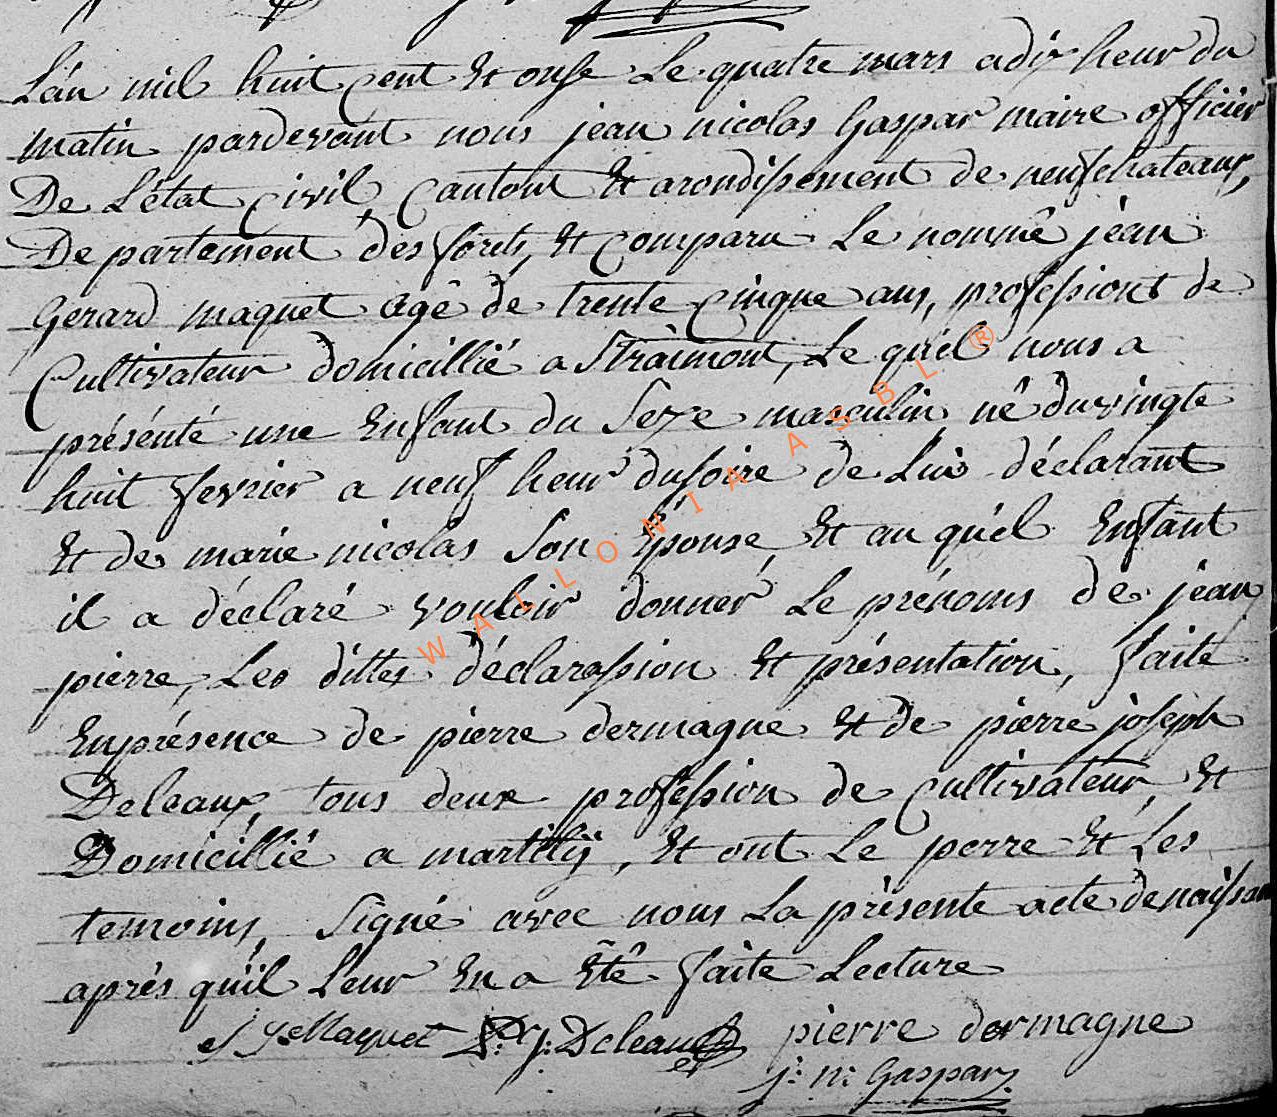 L'an mil huit cent Et onse Le quatre mars a dix heur du
matin pardevant nous jean nicolas Gaspar maire officier
De L'état civil, Cantont Et arondissement de neufchateaux,
Departement des forêts, Et comparu Le nommê jean
Gerard maquet agê de trente cinque ans, professiont de
Cultivateur domicillié a Straimont, Le quéel nous a
présénté une Enfant du Sexe masculin né du vingte
huit fevrier a neuf heur du soire de Lui déclarant
Et de marie nicolas Son Épouse, Et au quéel Enfant
il a déclaré vouloir donner Le prénoms de jean
pierre, Les dittes déclarassion Et présentation, faite
En présence de pierre dermagne Et de pierre joseph
Deleaux, tous deux profession de Cultivateur, Et
Domicillié a martilÿ, Et ont Le perre Et Les
temoins, Signé avec nous La présente acte de naissan
aprés qu'il Leur En a Êtê faite Lecture
Maquet P: j: Deleaux pierre dermagne
j: n: Gaspar
WALLONIA ASBL ®